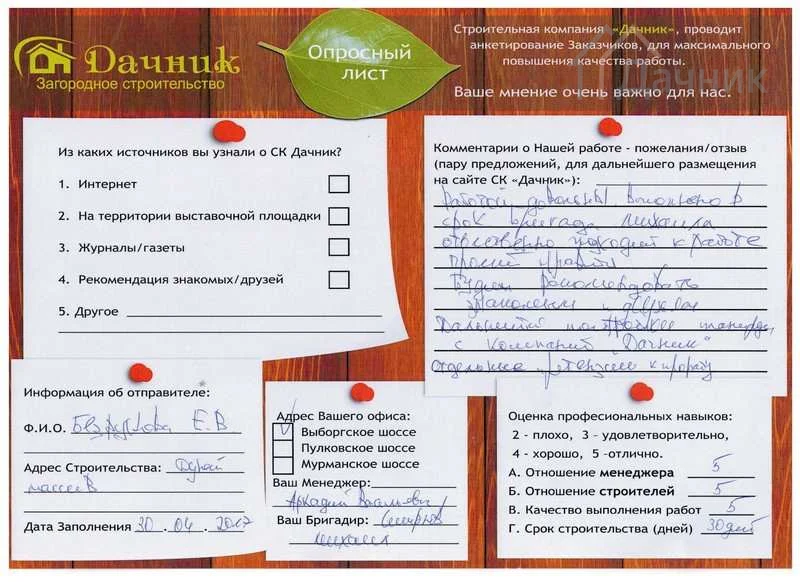 Дачник
Загородное строительство
Опросный
лист
Строительная компания «Дачник», проводит
анкетирование Заказчиков, для максимального
повышения качества работы.
Ваше мнение очень важно для нас.
Дачник
Из каких источников вы узнали о СК Дачник?
1. Интернет
2. На территории выставочной площадки
3. Журналы/газеты
4. Рекомендация знакомых/друзей
5. Другое
Комментарии о Нашей работе - пожелания/отзыв
(пару предложений, для дальнейшего размещения
на сайте СК «Дачник»):
Работой довольны, выполнено в
срок бригада Михаила
ответственно подходит к работе
Будем рекомендовать
знакомым и друзьям
с компанией "Дачник"
Информация об отправителе:
Ф.И.О. Е.В
Адрес Строительства:
массив
Дата Заполнения 30 . 04 . 2017
Адрес Вашего офиса:
Выборгское шоссе
Пулковское шоссе
Мурманское шоссе
Ваш Менеджер:
Аркадий
Ваш Бригадир: Смирнов
Михаил
Оценка професиональных навыков:
2 - плохо, 3 - удовлетворительно,
4 - хорошо, 5 -отлично.
А. Отношение менеджера 5
Б. Отношение строителей 5
В. Качество выполнения работ 5
Г. Срок строительства (дней) 30 дней